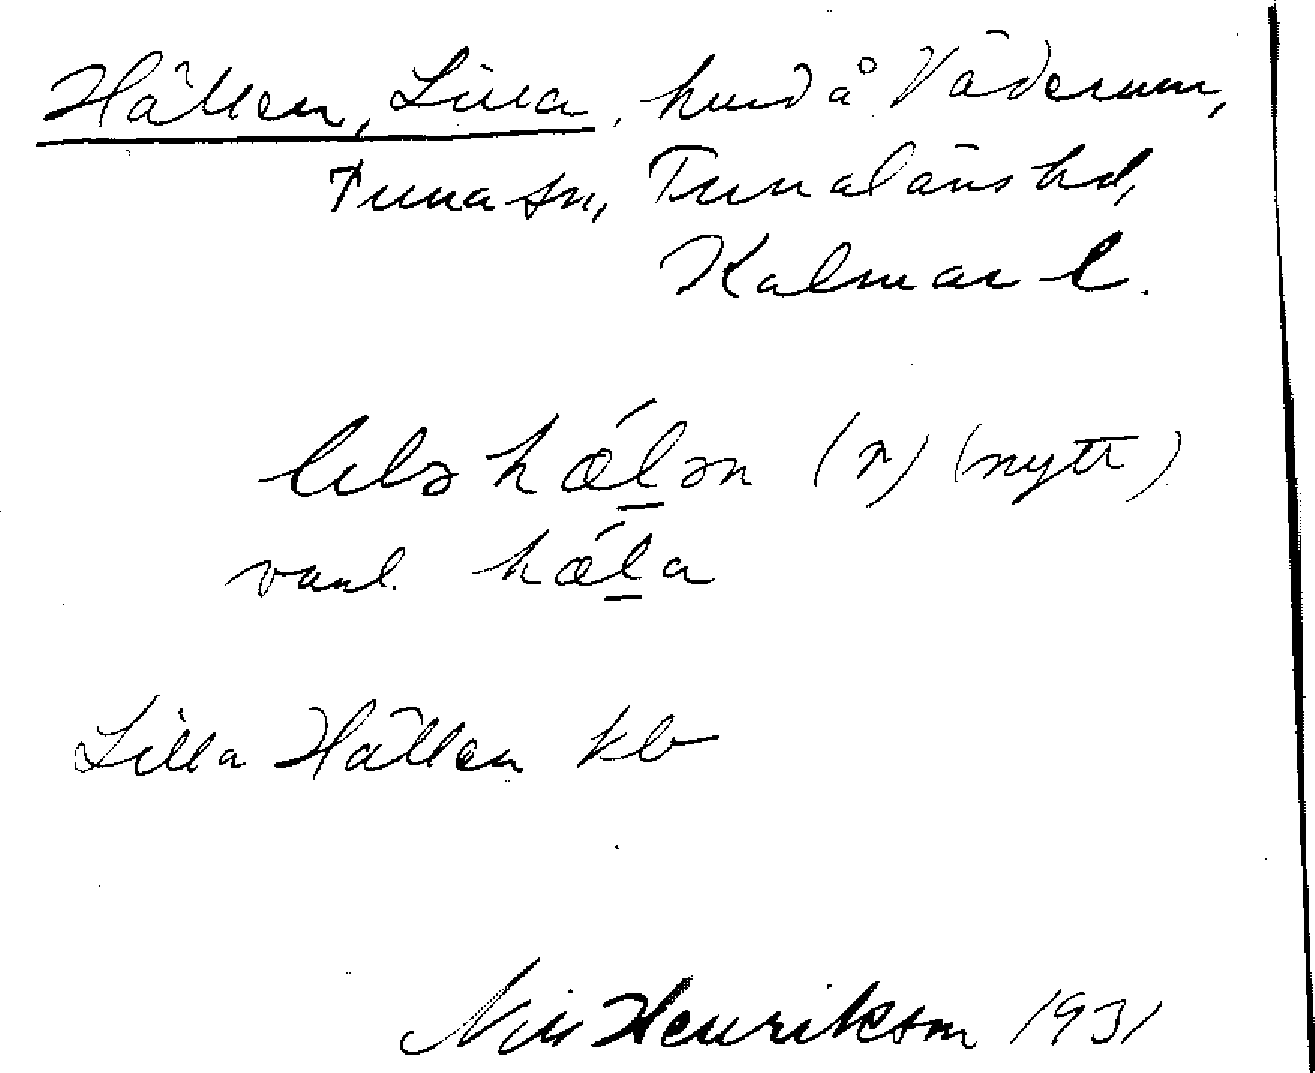 Hällen, Lilla, hmd å Väderum,
Tuna sn, Tunaläns hd,
Kalmar l.
lilə hǽl̠ən (n) (nytt)
vanl. hǽl̠a
Lilla Hällen kb
Nils Henrikson 1931